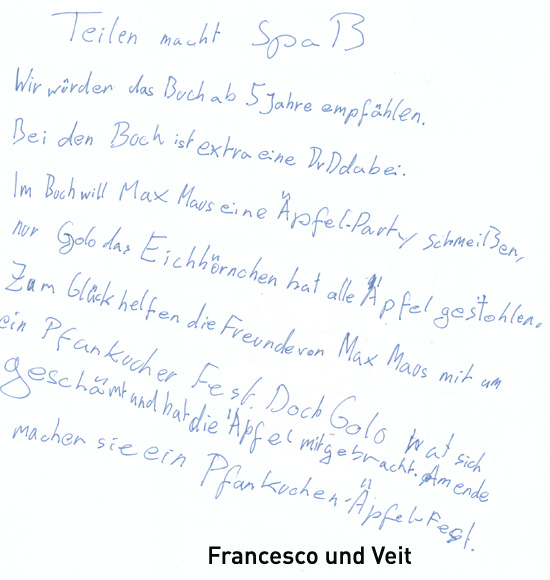 Teilen macht Spaß
Wir würden das Buch ab 5 Jahre empfählen.
Bei den Buch ist extra eine DvD dabei.
Im Buch will Max Maus eine Äpfel-Party schmeißen,
nur Golo das Eichhörnchen hat alle Äpfel gestohlen.
Zum Glück helfen die Freunde von Max Maus mit um
ein Pfankuchen Fest. Doch Golo hat sich
geschämt und hat die Äpfel mitgebracht. Am ende
machen sie ein Pfankuchen-Äpfel-Fest.
Francesco und Veit